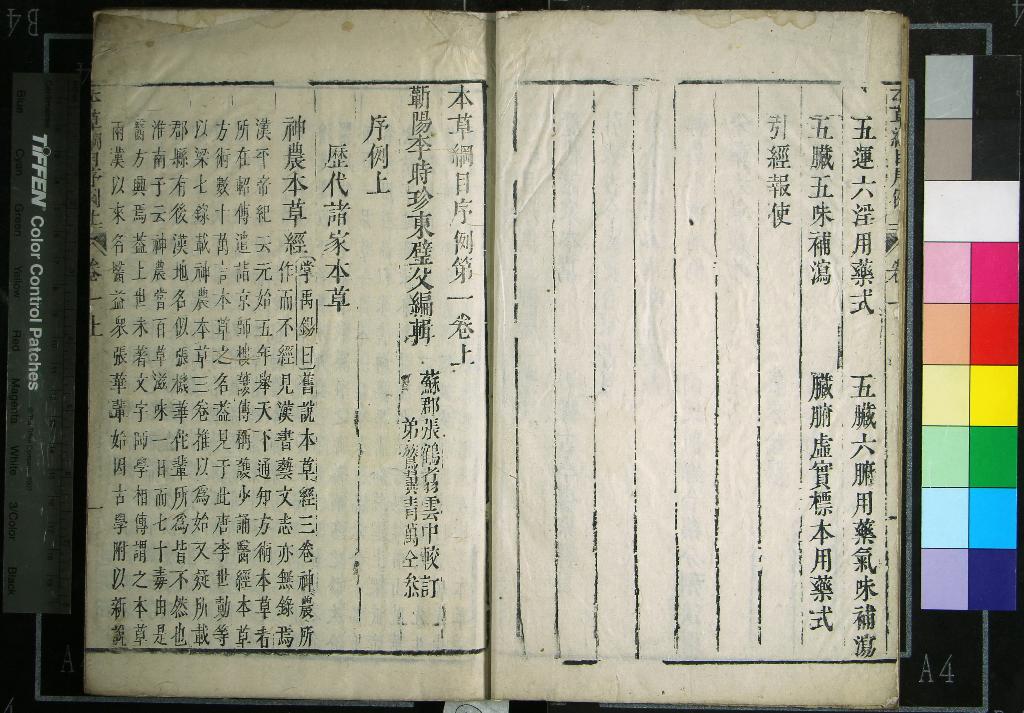 五運六淫用藥式　五臟六腑用藥氣味補瀉
五臟五味補瀉　臟腑虛實標本用藥式
引經報使
本草綱目序例第一卷上
蘄陽李時珍東璧父編輯
蘇郡張鶴翥雲中較訂
序例上
歷代諸家本草
神農本草經
掌禹錫曰舊說本草經三卷神農所
作而不經見漢書藝文志亦無錄焉
漢平帝紀云元始五年舉天下通知方術本草者
所在軺傳遣詣京師樓護傳稱護少誦醫經本草
方術數十萬言本草之名蓋見于此唐李世勣等
以梁七錄載神農本草三卷推以為始又疑所載
郡縣有後漢地名似張機華佗輩所為皆不然也
淮南子云神農嘗百草滋味一日而七十毒由是
醫方興焉蓋上世未著文字師學相傳謂之本草
兩漢以來名醫益衆張華輩始因古學附以新說
卷一上
一
TIFFEN Color Control Patches
Blue
Cyan
Green
Yellow
Red
Magenta
White
3/Color
Black
B4
A4
A